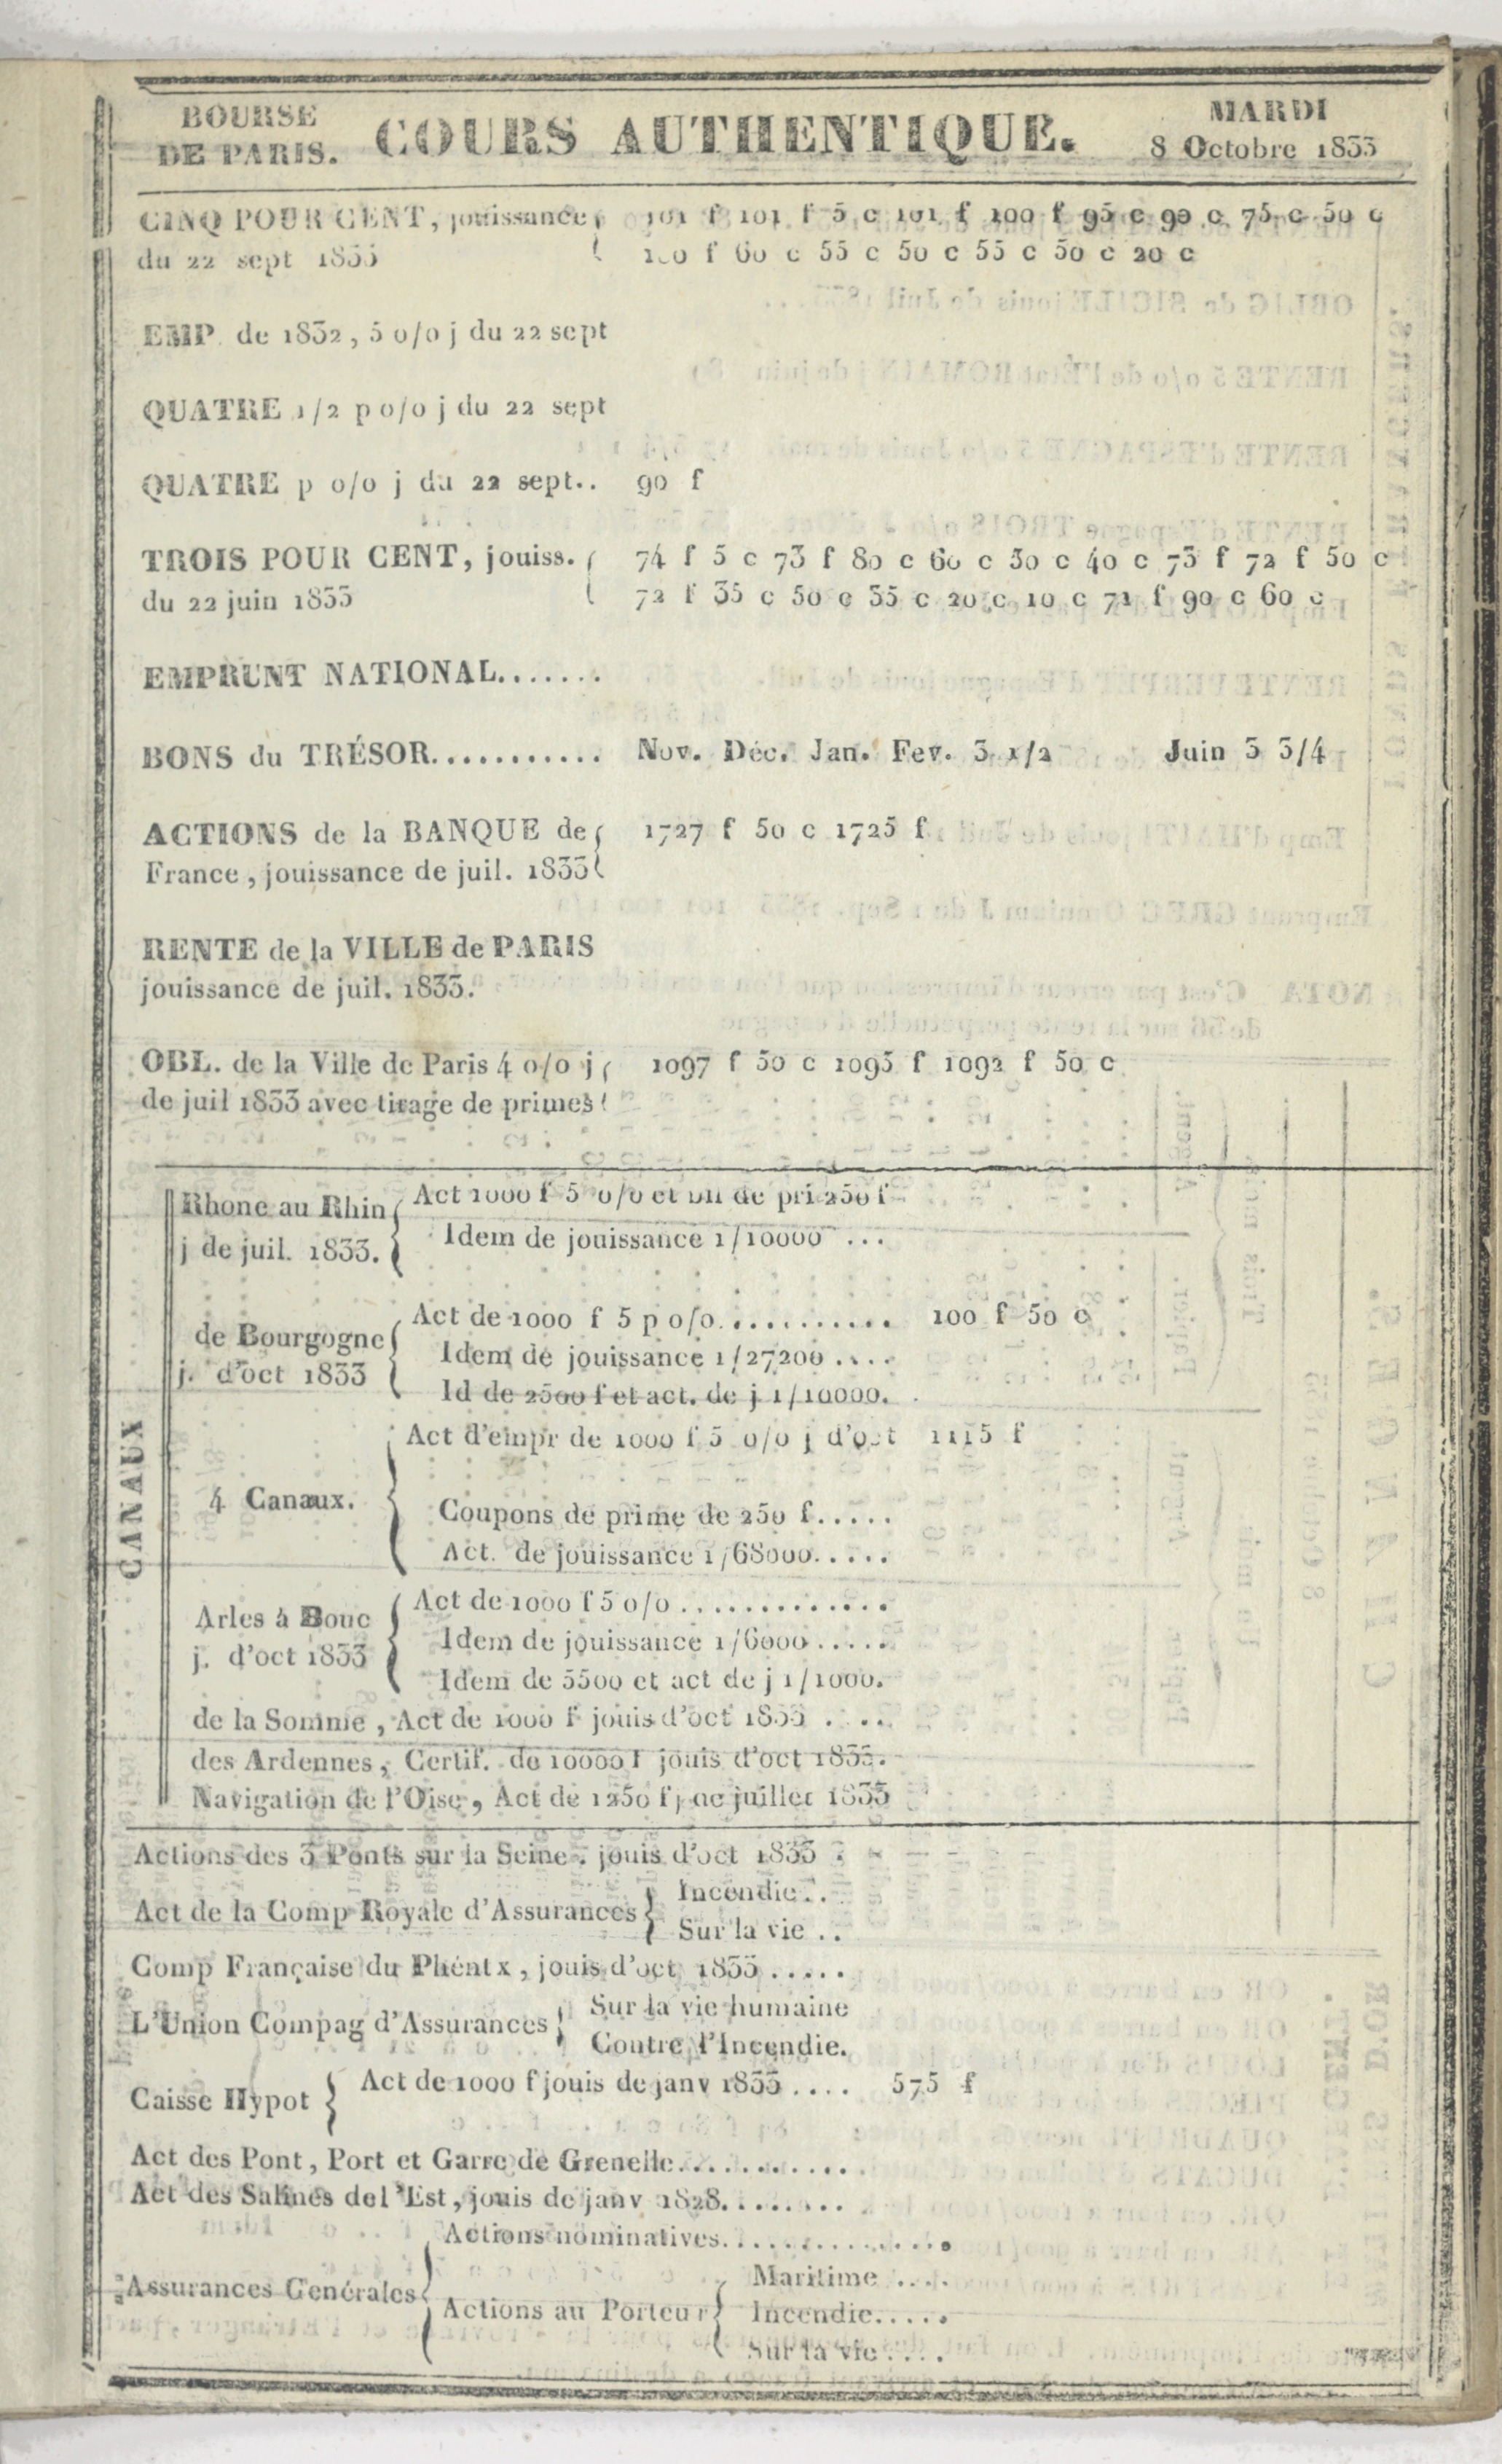 BOURSE
DE PARIS.
COURS AUTHENTIQUE.
MARDI
8 Octobre 1833
CINQ POUR CENT, jouissance 101 f 101 f 5 c 101 f 100 f 95 c 90 c 75 c 50 c
du 22 sept 1833 f 60 c 55 c 50 c 55 c 50 c 20 c
EMP. de 1832, 5 o/o j du 22 sept
QUATRE 1/2 p o/o j du 22 sept
QUATRE p o/o j du 22 sept.. 90 f
TROIS POUR CENT, jouiss. 74 f 5 c 73 f 80 c 60 c 50 c 40 c 73 f 72 f 50 c
du 22 juin 1833 72 f 35 c 50 c 35 c 20 c 10 c 71 f 90 c 60 c
EMPRUNT NATIONAL.......
BONS du TRÉSOR........... Nov. Déc. Jan. Fev. 3 1/2 Juin 3 3/4
ACTIONS de la BANQUE de 1727 f 50 c 1725 f
France, jouissance de juil. 1833
RENTE de la VILLE de PARIS
jouissance de juil. 1833.
OBL. de la Ville de Paris 4 o/o j 1097 f 50 c 1095 f 1092 f 50 c
de juil 1833 avec tirage de primes
CANAUX
Rhone au Rhin
j de juil. 1833.
Act 1000 f 5 o/o et bil de pri 250 f
Idem de jouissance 1/10000 ...
de Bourgogne
j. d'oct 1833
Act de 1000 f 5 p o/o........... 100 f 50 c
Idem de jouissance 1/27200 ....
Id de 2500 f et act. de j 1/10000.
4 Canaux.
Act d'empr de 1000 f 5 o/o j d'oct 1115 f
Coupons de prime de 250 f.....
Act. de jouissance 1/68000.....
Arles à Bouc
j. d'oct 1833
Act de 1000 f 5 o/o .............
Idem de jouissance 1/6000.....
Idem de 5500 et act de j 1/1000.
de la Somme, Act de 1000 f jouis d'oct 1833 ....
des Ardennes, Certif. de 10000 f jouis d'oct 1833.
Navigation de l'Oise, Act de 1250 f j de juillet 1833
Actions des 3 Ponts sur la Seine. jouis d'oct 1833 .
Act de la Comp Royale d'Assurances
Incendie..
Sur la vie ..
Comp Française du Phéntx, jouis d'oct 1833 .....
L'Union Compag d'Assurances
Sur la vie humaine
Contre l'Incendie.
Caisse Hypot Act de 1000 f jouis de janv 1833 .... 575 f
Act des Pont, Port et Garre de Grenelle............
Act des Salines del'Est, jouis de janv 1828........
Assurances Genérales
Actions nominatives...............
Actions au Porteur
Maritime ....
Incendie.....
Sur la vie ....